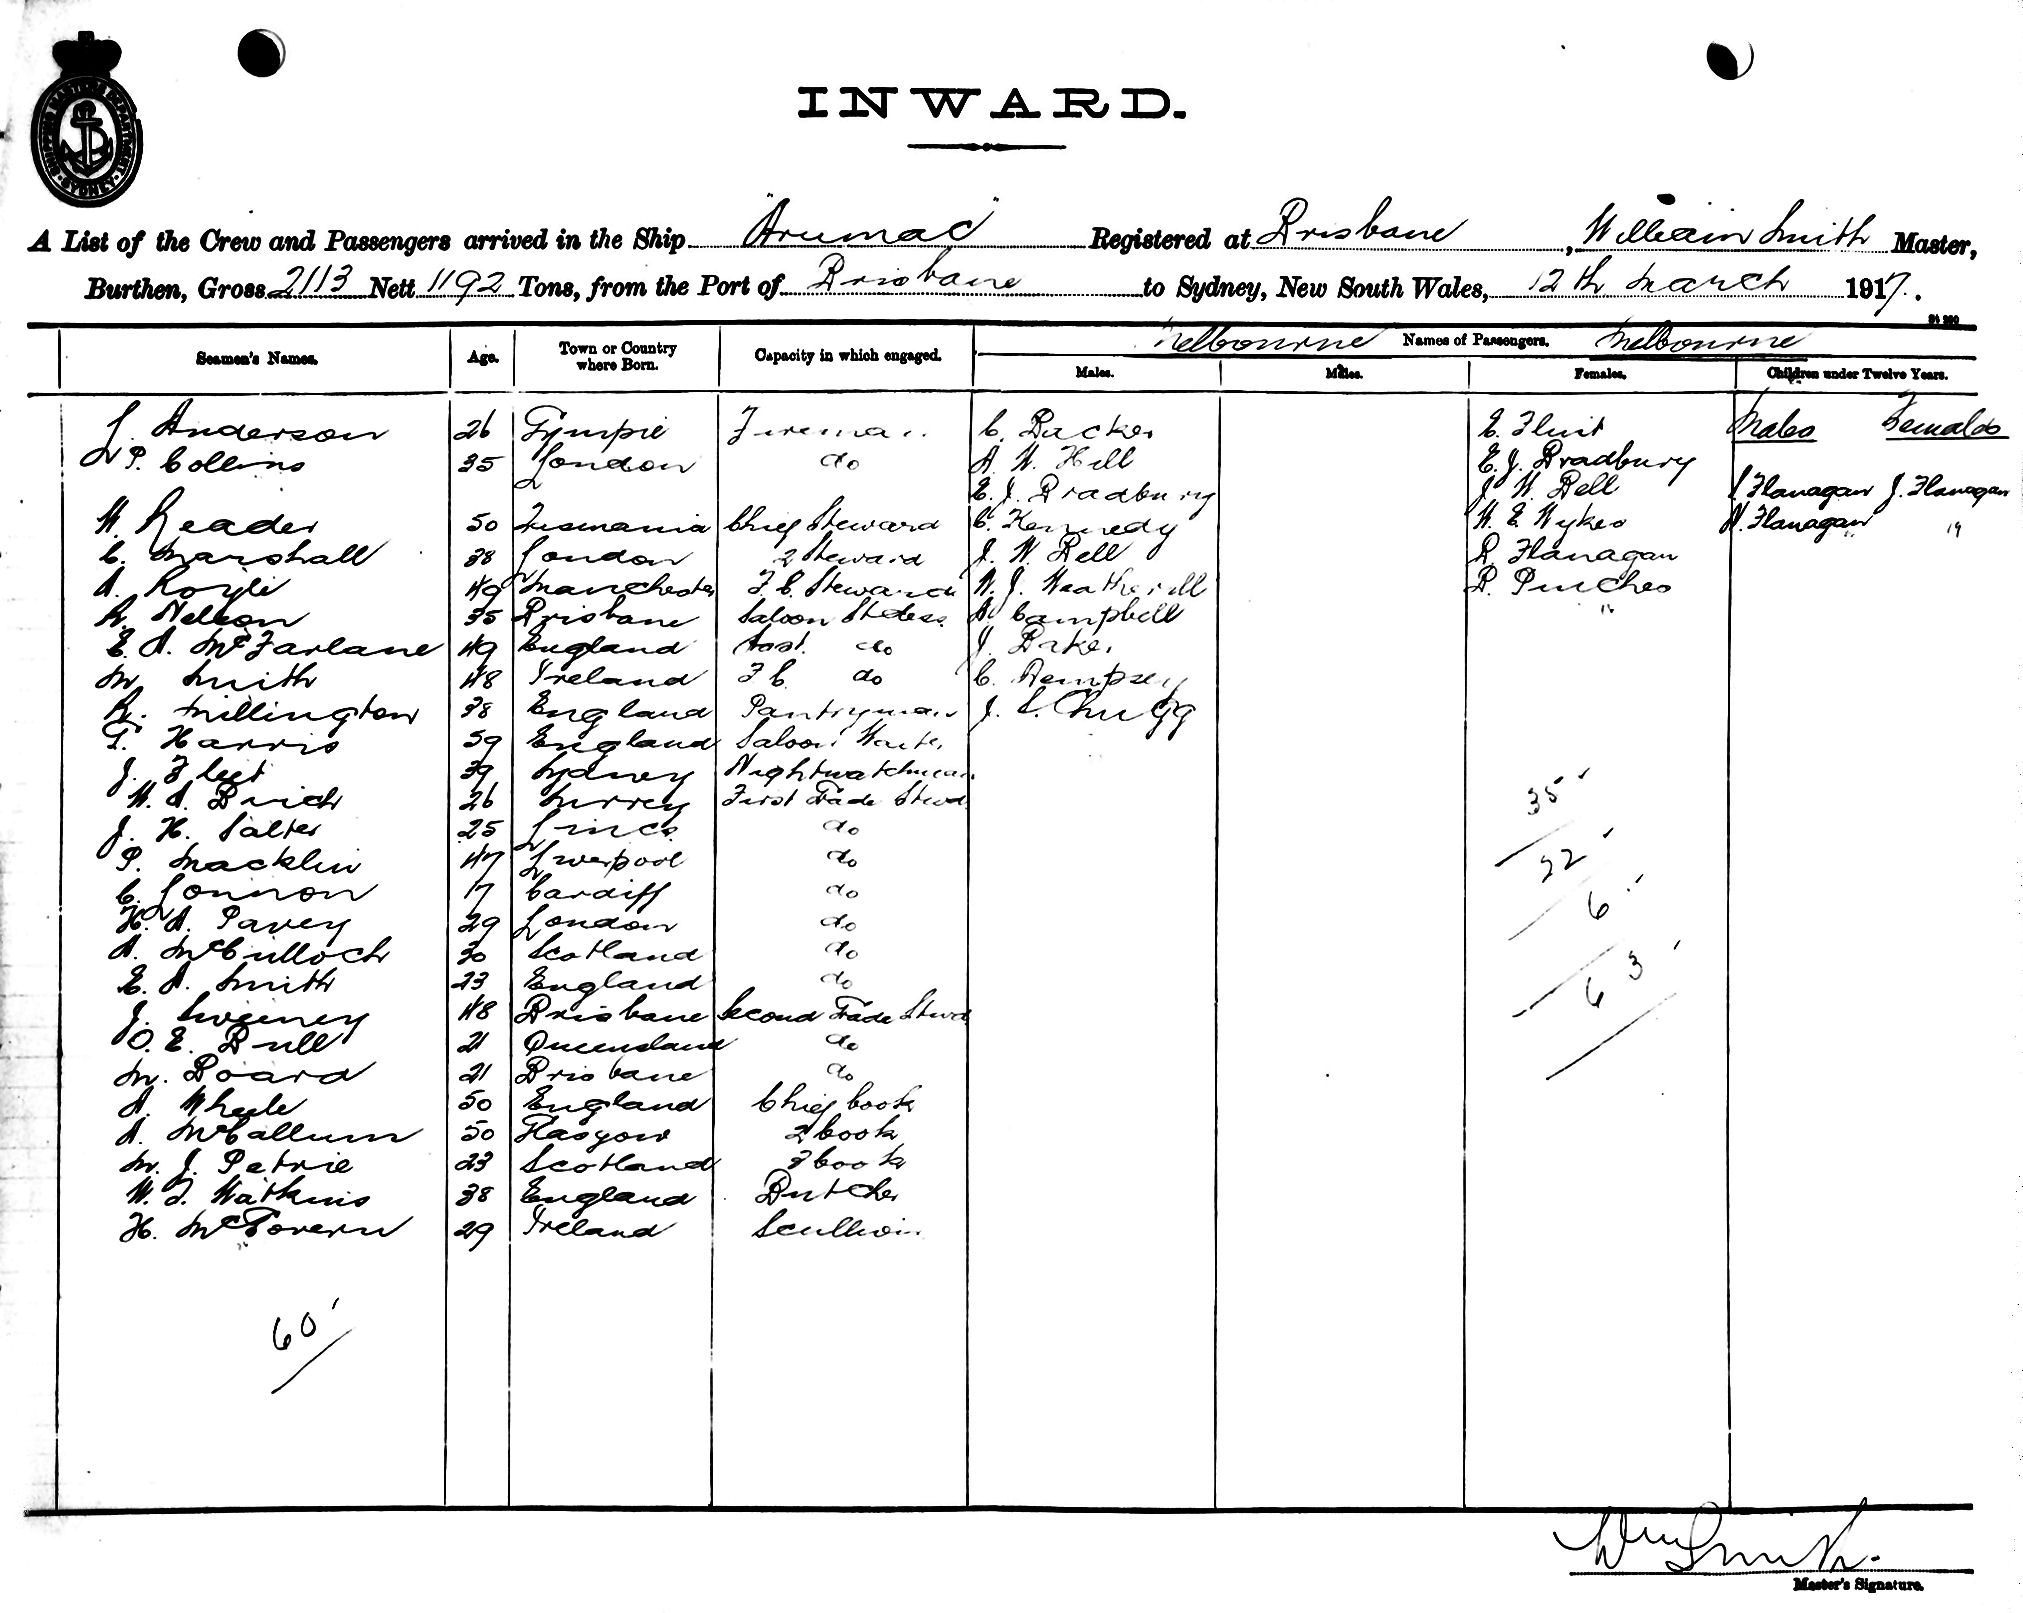 SHIPPING MASTERS DEPARTMENT
SYDNEY
INWARD.
A List of the Crew and Passengers arrived in the Ship "Arumac" Registered at Brisbane, William Smith Master,
Burthen, Gross 2113 Nett 1192 Tons, from the Port of Brisbane to Sydney, New South Wales, 12th March 1917.
Seamen's Names. Age. Town or Country where Born. Capacity in which engaged. Melbourne Names of Passengers. Melbourne
Males. Males. Females. Children under Twelve Years.
L. Anderson 26 Gympie Fireman C. Backer E. Flint Males Females
P. Collins 35 London do A. W. Hill E. J. Bradbury
E. J. Bradbury J. W. Bell Flanagan J. Flanagan
W. Reader 50 Tasmania Chief Steward C. Kennedy W. E. Wykes N. Flanagan "
C. Marshall 38 London 2 Steward J. W. Bell R. Flanagan
A. Royle 49 Manchester F. C. Steward W. J. Weatherill R. Pinches
R. Nelson 35 Brisbane Saloon Stdess. A. Campbell "
E. A. McFarlane 49 England Asst. do J. Baker
M. Smith 48 Ireland F C. do C. Dempsey
R. Millington 38 England Pantryman J. S. Chugg
T. Harris 59 England Saloon Waiter
J. Fleet 39 Sydney Nightwatchman
W. A. Brich 26 Surrey First Fade Stwd
J. H. Salter 25 Lincs. do
P. Macklin 47 Liverpool do
C. Lonnon 17 Cardiff do
H. A. Pavey 29 London do
A. McCulloch 30 Scotland do
E. A. Smith 23 England do
J. Sweeney 48 Brisbane Second Fade Stwd
O. E. Bull 21 Queensland do
M. Board 21 Brisbane do
A. Wheele 50 England Chief Cook
A. McCallum 50 Glasgow 2 Cook
M. J. Petrie 23 Scotland 3 Cook
W. J. Watkins 38 England Butcher
H. McGovern 29 Ireland Scullion
35
22
6
63
60
Wm Smith.
Master's Signature.